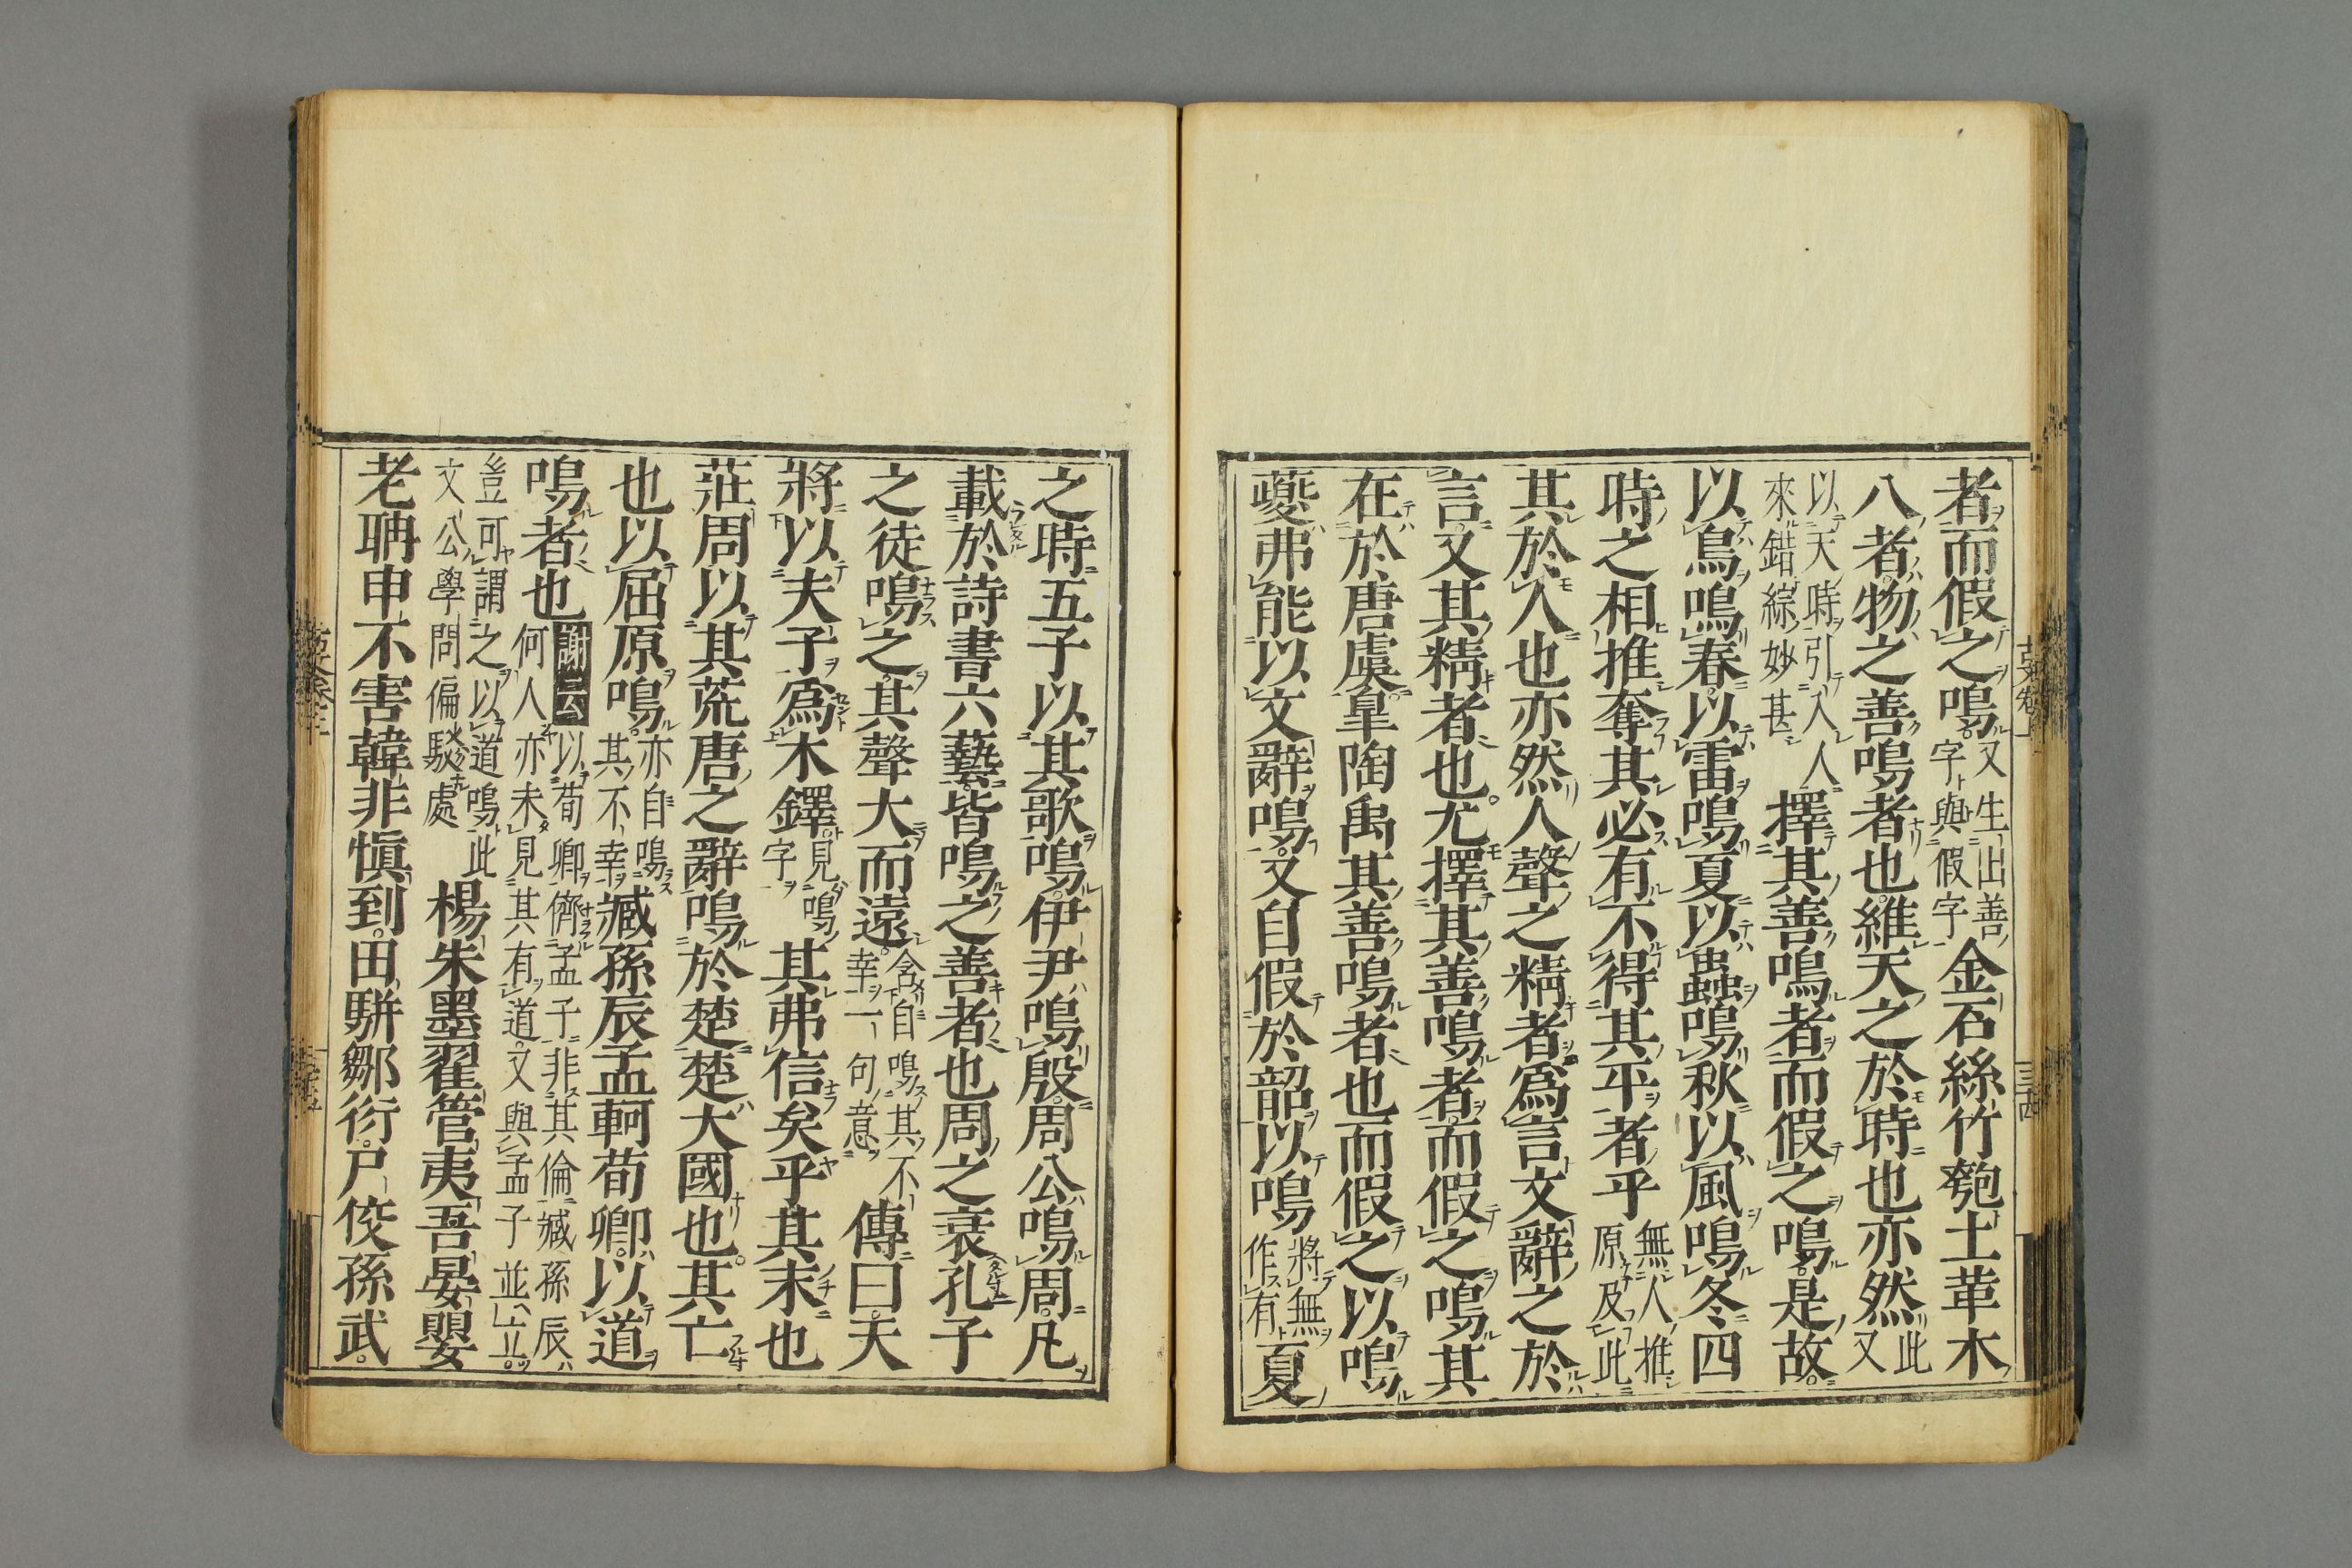 者而假之鳴又生出善字與假字金石絲竹匏土革木
八者物之善鳴者也維天之於時也亦然此又
以天時引入人來錯綜妙甚擇其善鳴者而假之鳴是故
以鳥鳴春以雷鳴夏以蟲鳴秋以風鳴冬四
時之相推奪其必有不得其平者乎無人推原及此
其於人也亦然人聲之精者爲言文辭之於
言又其精者也尤擇其善鳴者而假之鳴其
在於唐虞皐陶禹其善鳴者也而假之以鳴
夔弗能以文辭鳴又自假於韶以鳴將無作有夏
之時五子以其歌鳴伊尹鳴殷周公鳴周凡
載於詩書六藝皆鳴之善者也周之衰孔子
之徒鳴之其聲大而遠含自鳴其不幸一句意傳曰天
將以夫子爲木鐸見鳴字其弗信矣乎其末也
莊周以其荒唐之辭鳴於楚楚大國也其亡
也以屈原鳴亦自鳴其不幸臧孫辰孟軻荀卿以道
鳴者也謝云以荀卿儕孟子非其倫臧孫辰何人亦未見其有道又與孟子並立
豈可謂之以道鳴此文公學問偏駁處楊朱墨翟管夷吾晏嬰
老聃申不害韓非愼到田駢鄒衍尸佼孫武